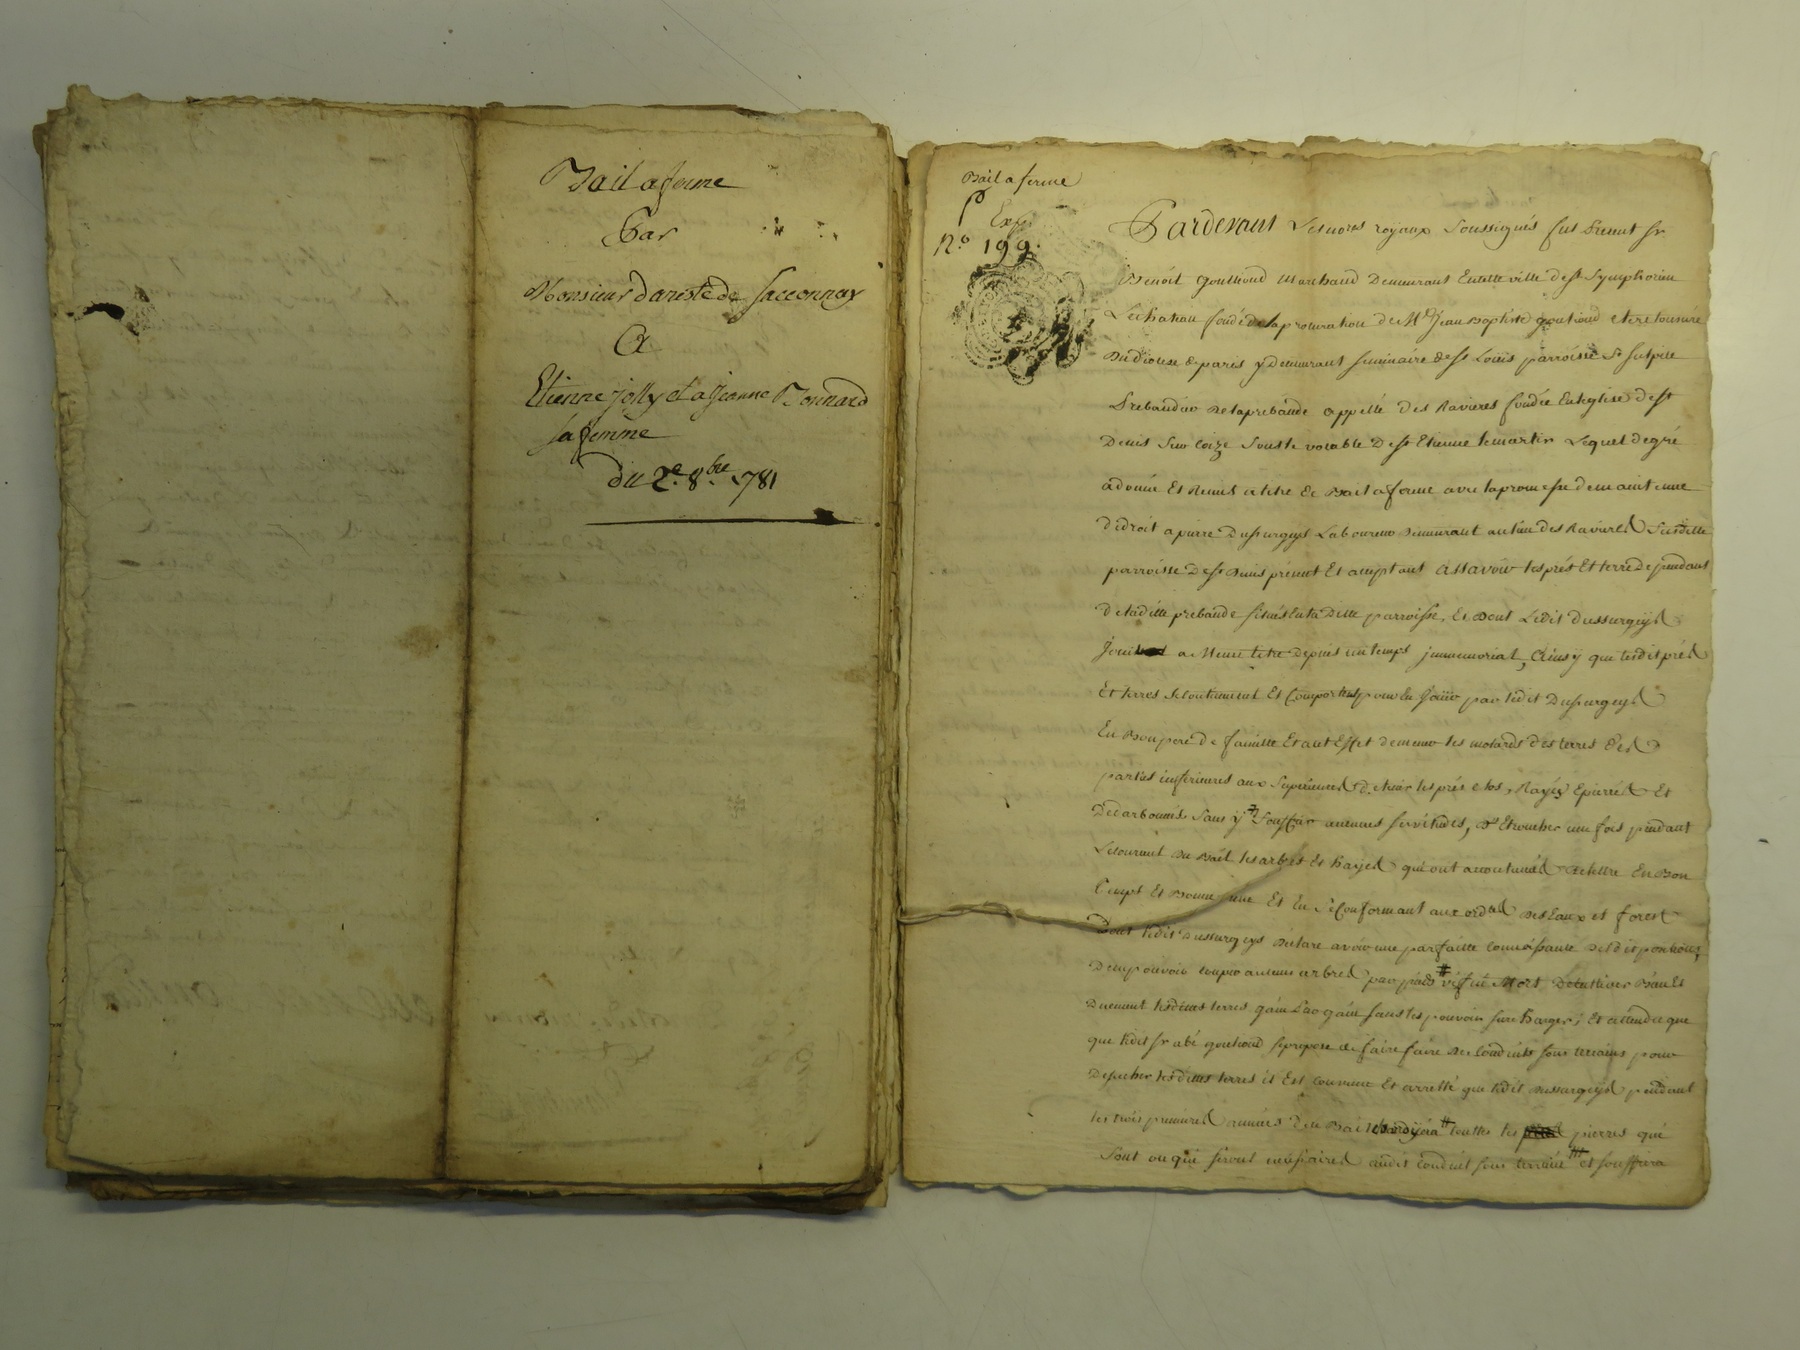 Bail a ferme
Par
Monsieur dareste de Sacconnay
A
Etienne jolly et a jeanne Bonnard
sa femme
du 2e. 8bre. 781
Bail a ferme
Exp
N.o 199.
Pardevant Les no.res royaux Soussignés fut Present sr
Benoit goutteud Marchand Demeurant En cette ville de st Symphorien
Le chateau fondé de la procuration de Mre jean Baptiste clerc tonsuré
Du diocese de paris y Demeurant seminaire de st Louis parroisse st sulpice
Prebandier De la prebande appellée Des Ravieres fondée En leglise de st
Denis Sur Coize Sous le vocable De st Etienne le martir Lequel de gré
a donné Et Remis a titre de Bail a ferme avec la promesse de maintenue
de droit a pierre Dussurgeys Laboureur Demeurant au lieu des Ravieres Susditte
parroisse De st Denis présent Et acceptant Assavoir les prés Et terre dependant
de la ditte prebande situés En la Ditte parroisse, Et Dont Ledit dussurgeys
jouit a Meme titre depuis un temps jmmemorial, Ainsy que lesdits prés
Et terres Se contiennent Et Comportent pour En jouir par ledit Dussurgeys
En Bon pere de famille Et a cet Effet de mener les motards des terres des
parties inferieures aux Superieures, de tenir les prés clos, Rayés Epierrés Et
Sans y souffrir aucunes servitudes, D'Etroncher une fois pendant
Le courant du Bail les arbres Et hayes qui ont accoutumés de lettre En Bon
temps Et Bonne lune Et En se Conformant aux ord.ces des Eaux et forest
Dont ledit Dussurgeys Déclare avoir une parfaitte connoissance Desdispositions,
De ne pouvoir couper aucuns arbres par pieds vif ni Mort De cultiver Bien Et
Duement lesdittes terres gain sur gain sans les pouvoir surcharger; Et attendu que
que ledit sr abé se propose de faire faire Des conduits sous terrains pour
Desecher lesdittes terres il Est convenu Et arretté que ledit Dussurgeys pendant
les trois premieres années du Bail charoyera touttes les pierres qui
sont ou qui seront necessaires audit conduit sous terrain et souffrira